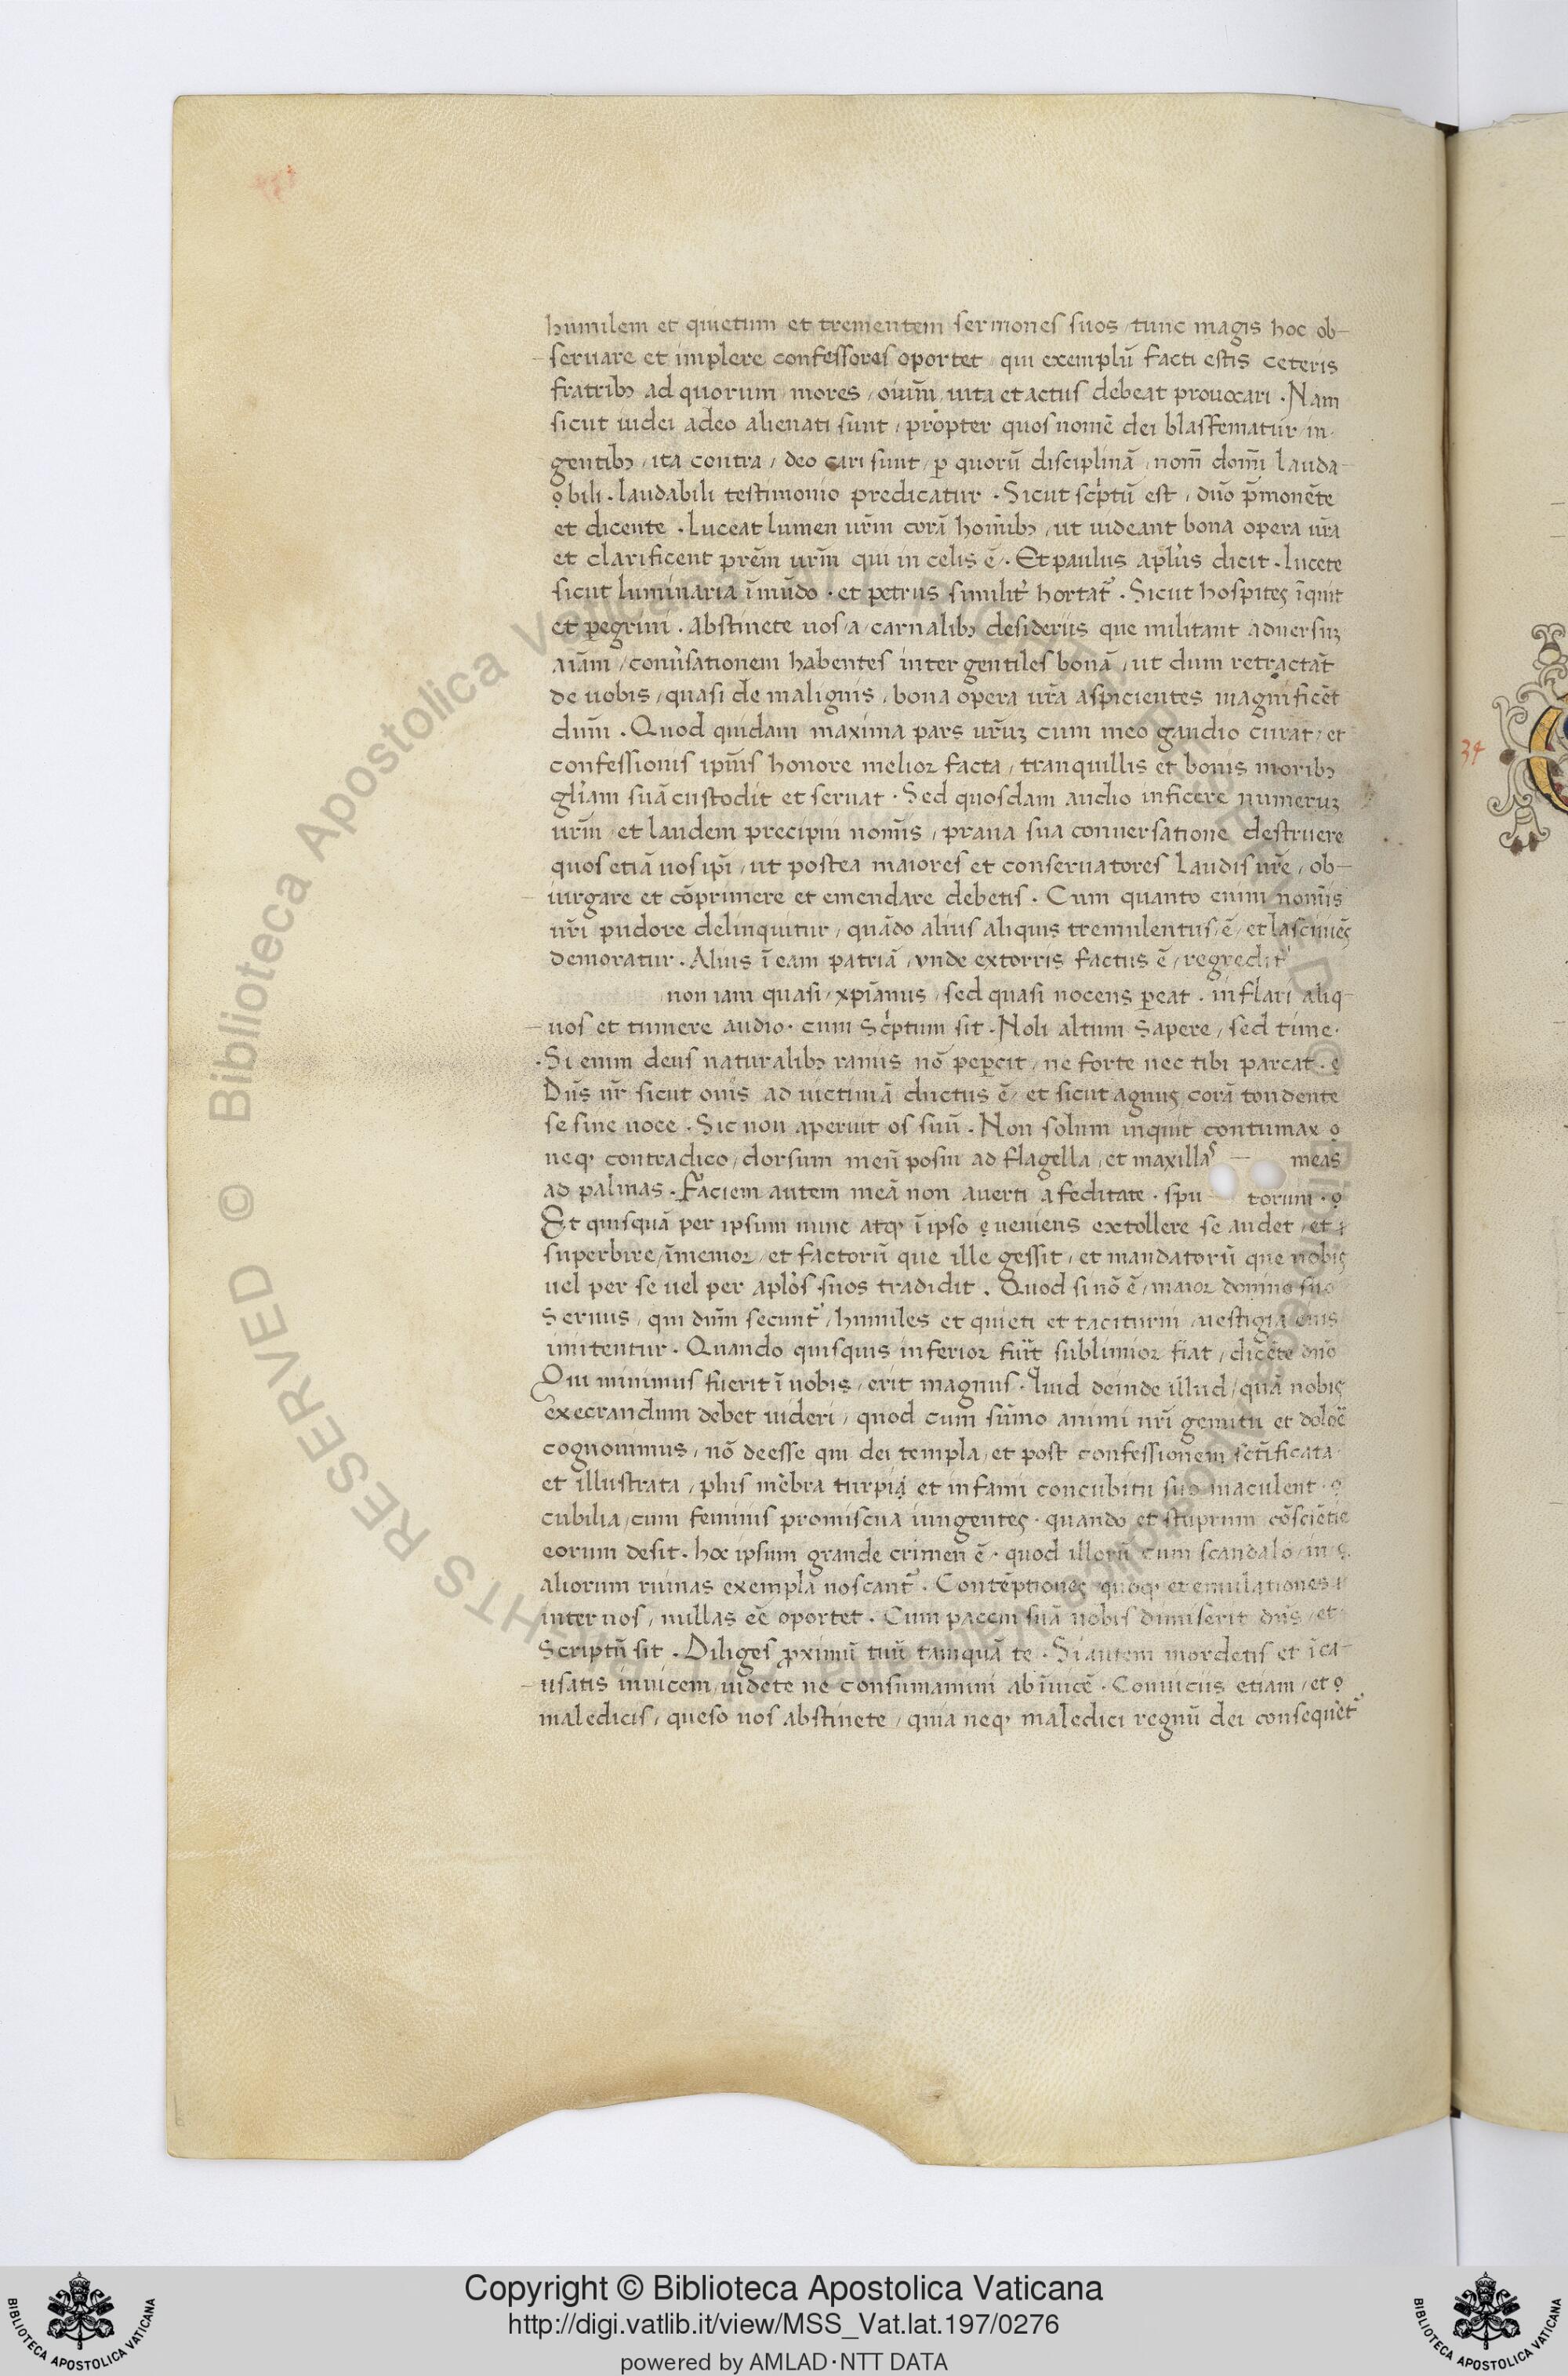 humilem et quietum et trementem sermones suos / tunc magis hoc ob-
seruare et implere confessores oportet / qui exemplū facti estis ceteris
fratribꝫ ad quorum mores / oīum uita et actus debeat prouocari . Nam
sicut iudei adeo alienati sunt / propter quos nomē dei blasfematur in
gentibꝫ / ita contra / deo cari sunt / ꝑ quorū disciplinā / nom̄ domī lauda
bili . laudabili testimonio predicatur . Sicut scͥptū est / dn̄o p̄monēte
et dicente . Luceat lumen ur̄m corā homībꝫ / ut uideant bona opera ur̄a
et clarificent prēm ur̄m qui in celis ē . Et paulus apl̄us dicit . lucete
sicut luminaria ī mūdo . et petrus similit̓ hortat᷑ . Sicut hospites īquit
et peregrini . Abstinete uos a carnalibꝫ desideriis que militant aduersuꝫ
aīam / conu̓sationem habentes inter gentiles bonā / ut dum retractāt
de uobis / quasi de malignis / bona opera ur̄a aspicientes magnificēt
dūm . Quod quidam maxima pars ur̄uꝫ cum meo gaudio curat / et
confessionis ipīus honore melior facta / tranquillis et bonis moribꝫ
gl̄iam suā custodit et seruat . Sed quosdam audio inficere numeruꝫ
ur̄m et laudem precipui nomīs / praua sua conuersatione destruere
quos etiā uos ipī / ut postea maiores et conseruatores laudis ur̄e / ob-
iurgare et cōprimere et emendare debetis . Cum quanto enim nomīs
ur̄i pudore delinquitur / quādo alius aliquis temulentus ē / et lasciuiēs
demoratur . Alius ī eam patriā / unde extorris factus ē / regredit᷑
non iam quasi / xp̄ianus / sed quasi nocens pereat . inflari aliq-
uos et tumere audio . cum scͥptum sit . Noli altum sapere / sed time .
Si enim deus naturalibꝫ ramis nō peꝑcit / ne forte nec tibi parcat .
Dn̄s nr̄ sicut ouis ad uictimā ductus ē / et sicut agnus corā tondente
se sine uoce . Sic non aperuit os suū . Non solum inquit contumax
neqꝫ contradico / dorsum meū posui ad flagella / et maxillas — meas
ad palmas . Faciem autem meā non auerti a feditate . spu torum .
Et quisquā per ipsum nunc atqꝫ ī ipso ueniens extollere se audet / et
superbire / īmemor / et factorū que ille gessit / et mandatorū que nobis
uel per se uel per apl̄os suos tradidit . Quod si nō ē / maior domino suo
Seruus / qui dūm secunt᷑ / humiles et quieti et taciturni / uestigia eius
imitentur . Quando quisquis inferior fuīt sublimior fiat / dicēte dn̄o
Qui minimus fuerit ī uobis / erit magnus . Quid deinde illud / quā nobis
execrandum debet uideri / quod cum sūmo animi nr̄i gemitu et dolōe
cognouimus / nō deesse qui dei templa / et post confessionem scīficata
et illustrata / plus mēbra turpia et infami concubitu suo maculent .
cubilia / cum feminis promiscua iungentes . quando et stuprum cōsciētie
eorum desit . hoc ipsum grande crimen ē . quod illorū cum scandalo / in
aliorum ruinas exempla noscant᷑ . Contēptiones quoqꝫ et emulationes
inter uos / nullas eē oportet . Cum pacem suā nobis dimiserit dn̄s / et
Scriptū sit . Diliges ꝓximū tuū tamquā te . Si autem mordetis et īca-
usatis inuicem / uidete ne consumamini ab īuicē . Conuiciis etiam / et
maledicis / queso uos abstinete / quia neqꝫ maledici regnū dei consequēt᷑
34
Copyright © Biblioteca Apostolica Vaticana
http://digi.vatlib.it/view/MSS_Vat.lat.197/0276
powered by AMLAD·NTT DATA